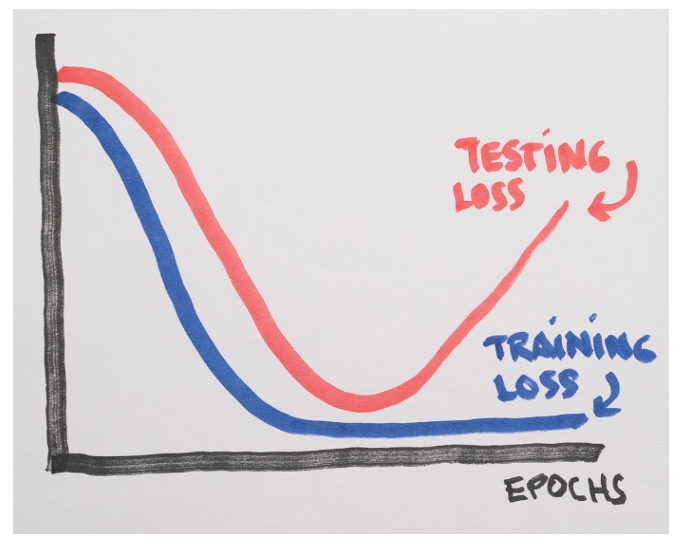 TESTING
LOSS
TRAINING
LOSS
EPOCHS